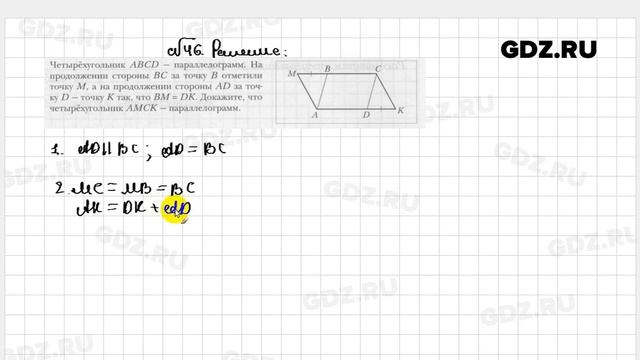 №46. Решение:
GDZ.RU
Четырёхугольник ABCD – параллелограмм. На
продолжении стороны BC за точку B отметили
точку M, а на продолжении стороны AD за точ-
ку D – точку K так, что BM = DK. Докажите, что
четырёхугольник AMCK – параллелограмм.
M B C
A D K
1. AD || BC ; AD = BC
2. MC = MB = BC
AK = DK + AD